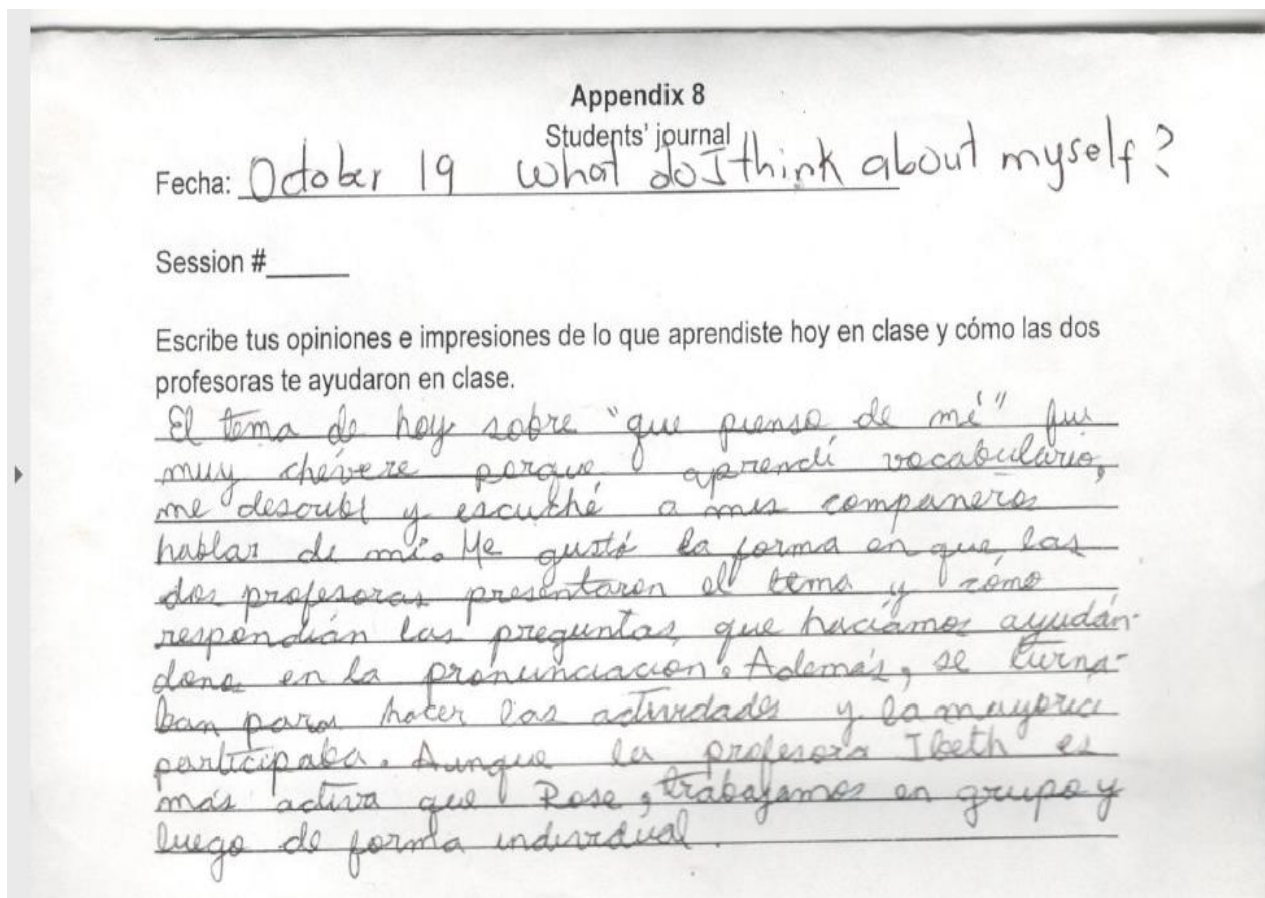 Appendix 8
Students' journal
Fecha: October 19 what do I think about myself?
Session #______
Escribe tus opiniones e impresiones de lo que aprendiste hoy en clase y cómo las dos
profesoras te ayudaron en clase.
El tema de hoy sobre "que pienso de mí" fue
muy chévere porque aprendí vocabulario,
me describí y escuché a mis compañeros
hablar de mí. Me gustó la forma en que las
dos profesoras presentaron el tema y cómo
respondían las preguntas que hacíamos ayudán-
donos en la pronunciación. Además, se turna-
ban para hacer las actividades y la mayoría
participaba. Aunque la profesora Ibeth es
más activa que Rose, trabajamos en grupo y
luego de forma individual.